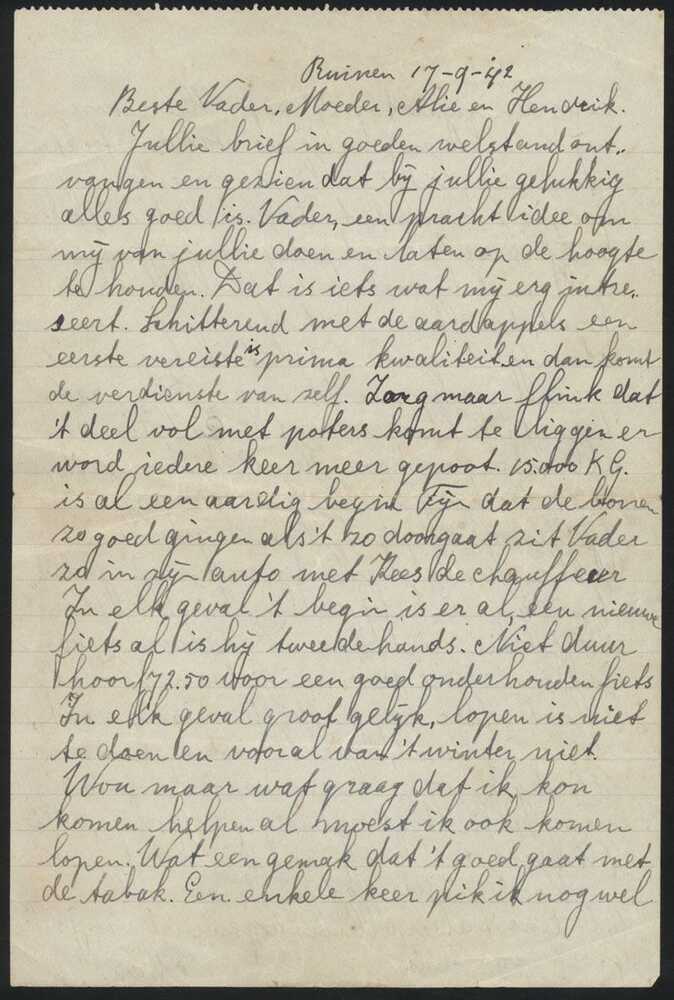 Ruinen 17-9-'42
Beste Vader, Moeder, Alie en Hendrik.
Jullie brief in goeden welstand ont..
vangen en gezien dat bij jullie gelukkig
alles goed is. Vader, een pracht idee om
mij van jullie doen en laten op de hoogte
te houden. Dat is iets wat mij erg intre..
seert. Schitterend met de aardappels een
eerste vereiste is prima kwaliteit en dan komt
de verdienste van zelf. Zorg maar flink dat
't deel vol met poters komt te liggen er
word iedere keer meer gepoot. 15.000 KG.
is al een aardig begin Fijn dat de bonen
zo goed gingen als 't zo doorgaat zit Vader
zo in zijn auto met Kees de chauffeur
In elk geval 't begin is er al, een nieuwe
fiets al is hij tweedehands. Niet duur
hoor f 72.50 voor een goed onderhouden fiets
In elk geval groot gelijk, lopen is niet
te doen en vooral van 't winter niet.
Wou maar wat graag dat ik kon
komen helpen al moest ik ook komen
lopen. Wat een gemak dat 't goed gaat met
de tabak. Een enkele keer pik ik nog wel